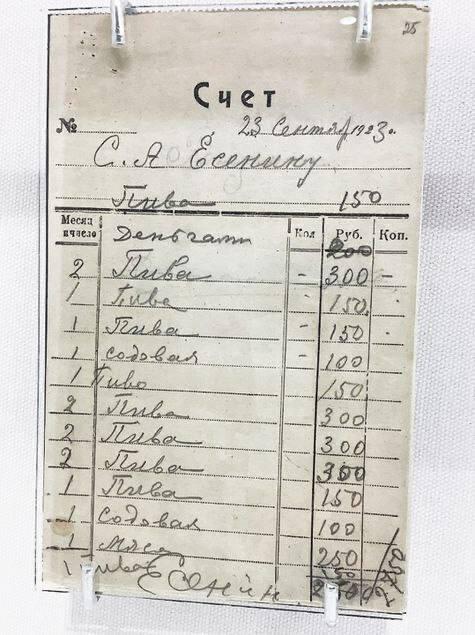 25
Счет
№ 23 Сентяб 1923г.
С. А Есенину
Пива 150
Месяц и число Деньгами Кол Руб. Коп.
200
2 Пива - 300 -
1 Пива - 150
1 Пива - 150
1 содовая - 100
1 Пиво 150
2 Пива 300
2 Пива 300
2 Пива 300
1 Пива 150
1 Содовая 100
1 мясо 250
1 пива